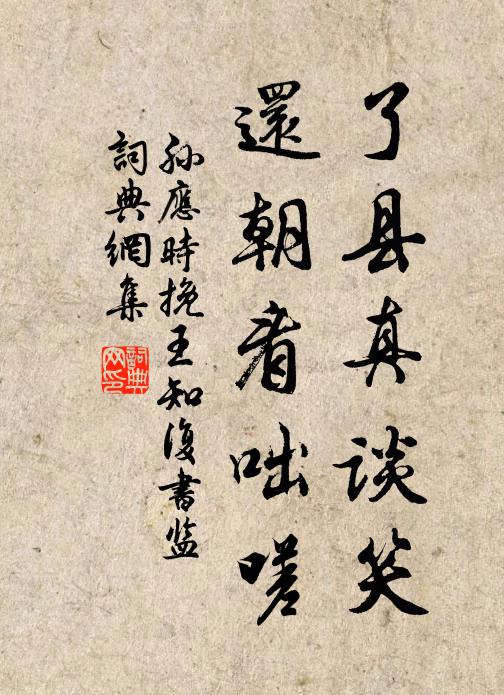 了县真谈笑
還朝看咄嗟
孙應時挽王知復書监
詞典網集
詞典网印